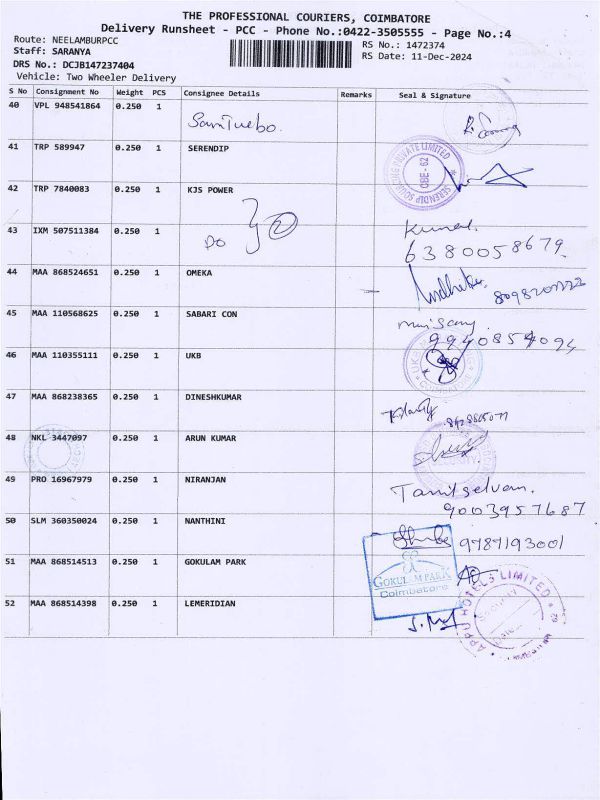 THE PROFESSIONAL COURIERS, COIMBATORE
Delivery Runsheet - PCC - Phone No.:0422-3505555 - Page No.:4
Route: NEELAMBURPCC
RS No.: 1472374
Staff: SARANYA
RS Date: 11-Dec-2024
DRS No.: DCJB147237404
Vehicle: Two Wheeler Delivery
S No Consignment No Weight PCS Consignee Details Remarks Seal & Signature
40 VPL 948541864 0.250 1
41 TRP 589947 0.250 1 SERENDIP
SERENDIP SOURCING PRIVATE LIMITED
CBE - 62
42 TRP 7840083 0.250 1 KJS POWER
DO
43 IXM 507511384 0.250 1 Kumar
6380058679
44 MAA 868524651 0.250 1 OMEKA
45 MAA 110568625 0.250 1 SABARI CON
9940854094
46 MAA 110355111 0.250 1 UKB
UKB
COIMBATORE
47 MAA 868238365 0.250 1 DINESHKUMAR
48 NKL 3447097 0.250 1 ARUN KUMAR
49 PRO 16967979 0.250 1 NIRANJAN Tamilselvan.
9003957687
50 SLM 360350024 0.250 1 NANTHINI
9787193001
51 MAA 868514513 0.250 1 GOKULAM PARK
GOKULAM PARK
Coimbatore
52 MAA 868514398 0.250 1 LEMERIDIAN
APPU HOTELS LIMITED